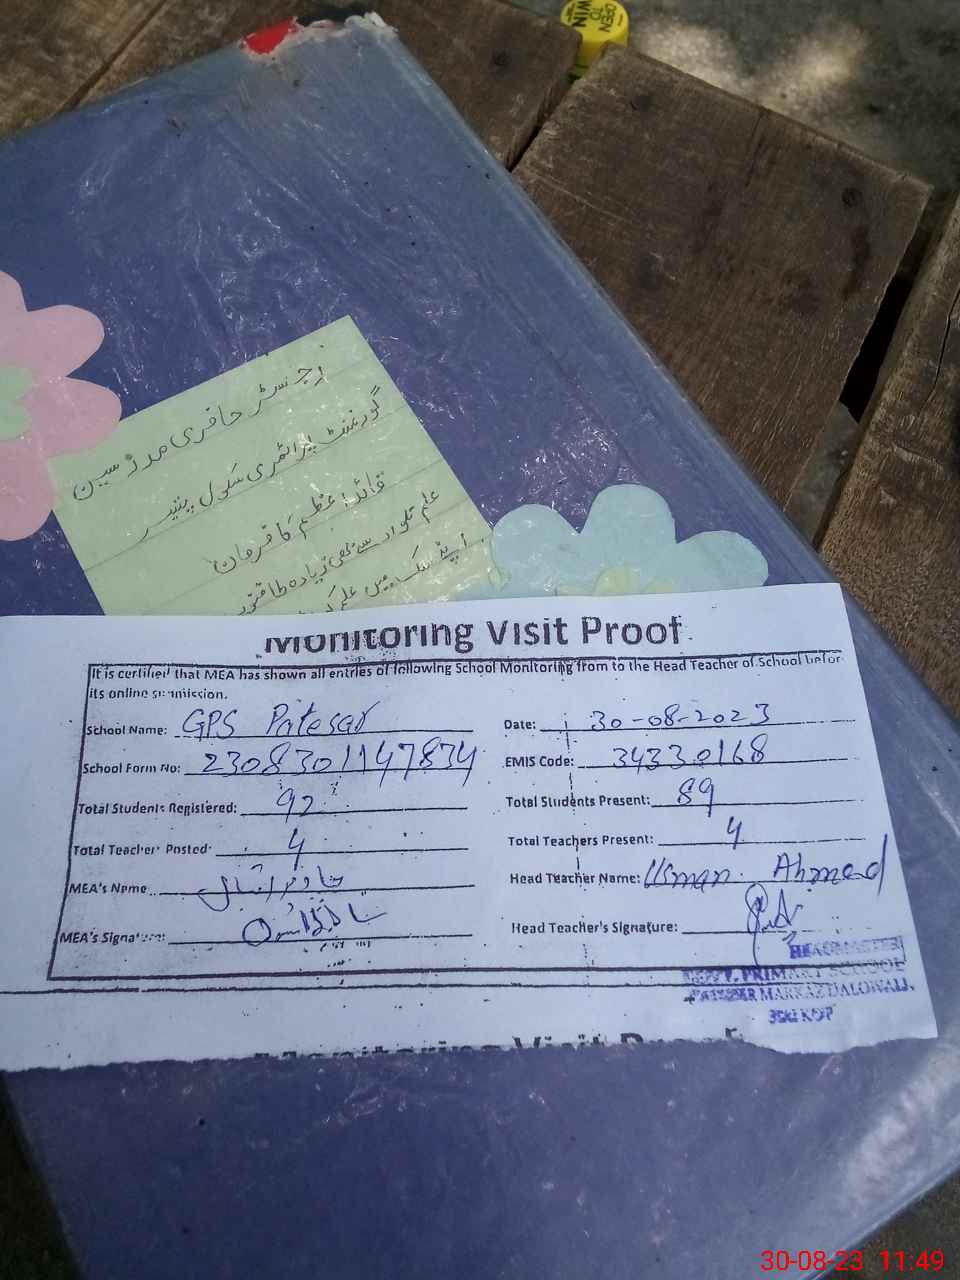 OPEN
TO
WIN
رجسٹر حاضری مدرسین
گورنمنٹ پرائمری سکول پٹیسر
قائد اعظم کا فرمان
علم تلوار سے بھی زیادہ طاقتور
میں علم
Monitoring Visit Proof
It is certified that MEA has shown all entries of following School Monitoring from to the Head Teacher of School befor
its online submission.
School Name: GPS Patesar Date: 30-08-2023
School Form No: 2308301147834 EMIS Code: 34330168
Total Students Registered: 92 Total Students Present: 89
Total Teacher Posted: 4 Total Teachers Present: 4
MEA's Name Head Teacher Name: Usman Ahmed
MEA's Signature: Head Teacher's Signature:
HEADMASTER
GOVT. PRIMARY SCHOOL
MARKAZ DALOWALI,
Monitoring Visit Proof
30-08-23 11:49